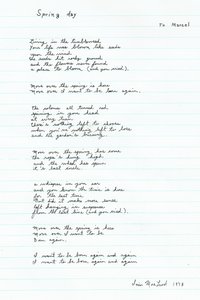 Spring day
To Marcel
Living in the
Your life was blown like seeds
upon the wind
the seeds hit rocky ground
and the flowers never found
a place to bloom (and you cried).
Move over the spring is here
Move over I want to be born again.
The colours all turned red
spinning in your head
at every turn
there's nothing left to choose
when you've nothing left to lose
and the garden's
Move over the spring has come
the rope's hung high
and the wheel has spun
it's last
a whisper in your ear
and you know the time is here
for the last time
But
left hanging in suspense
from the last time (and you cried).
Move over the spring is here
Move over I want to be
Born again.
I want to be born again and again
I want to be born again and again
1978